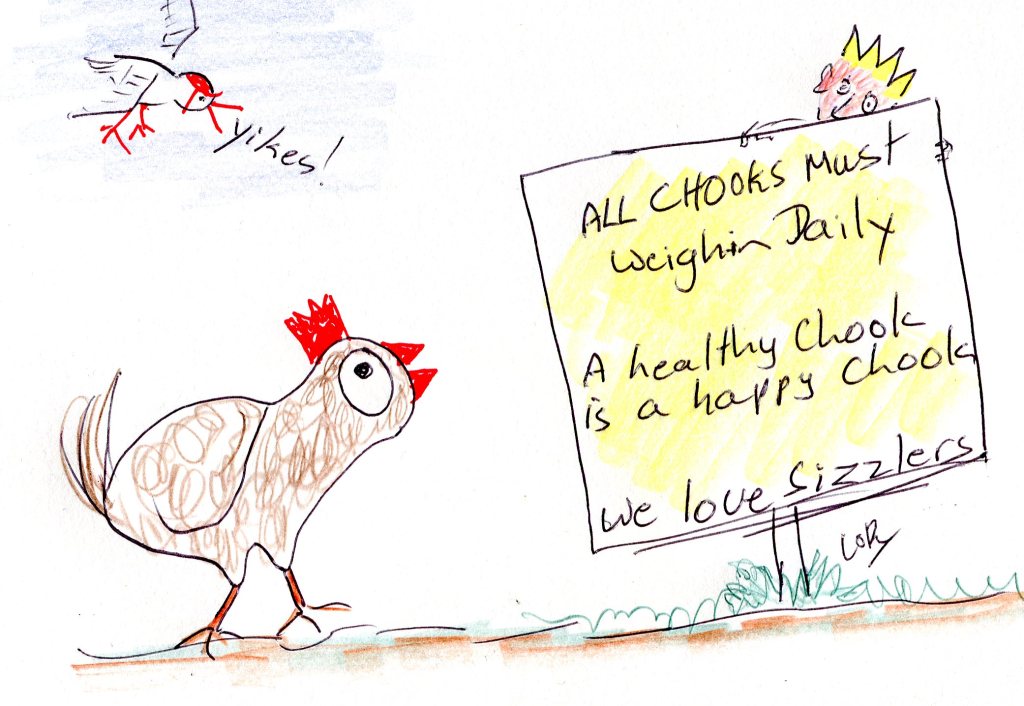 yikes!
ALL CHOOKS MUST
weighin Daily
A healthy Chook
is a happy Chook
we love sizzlers.